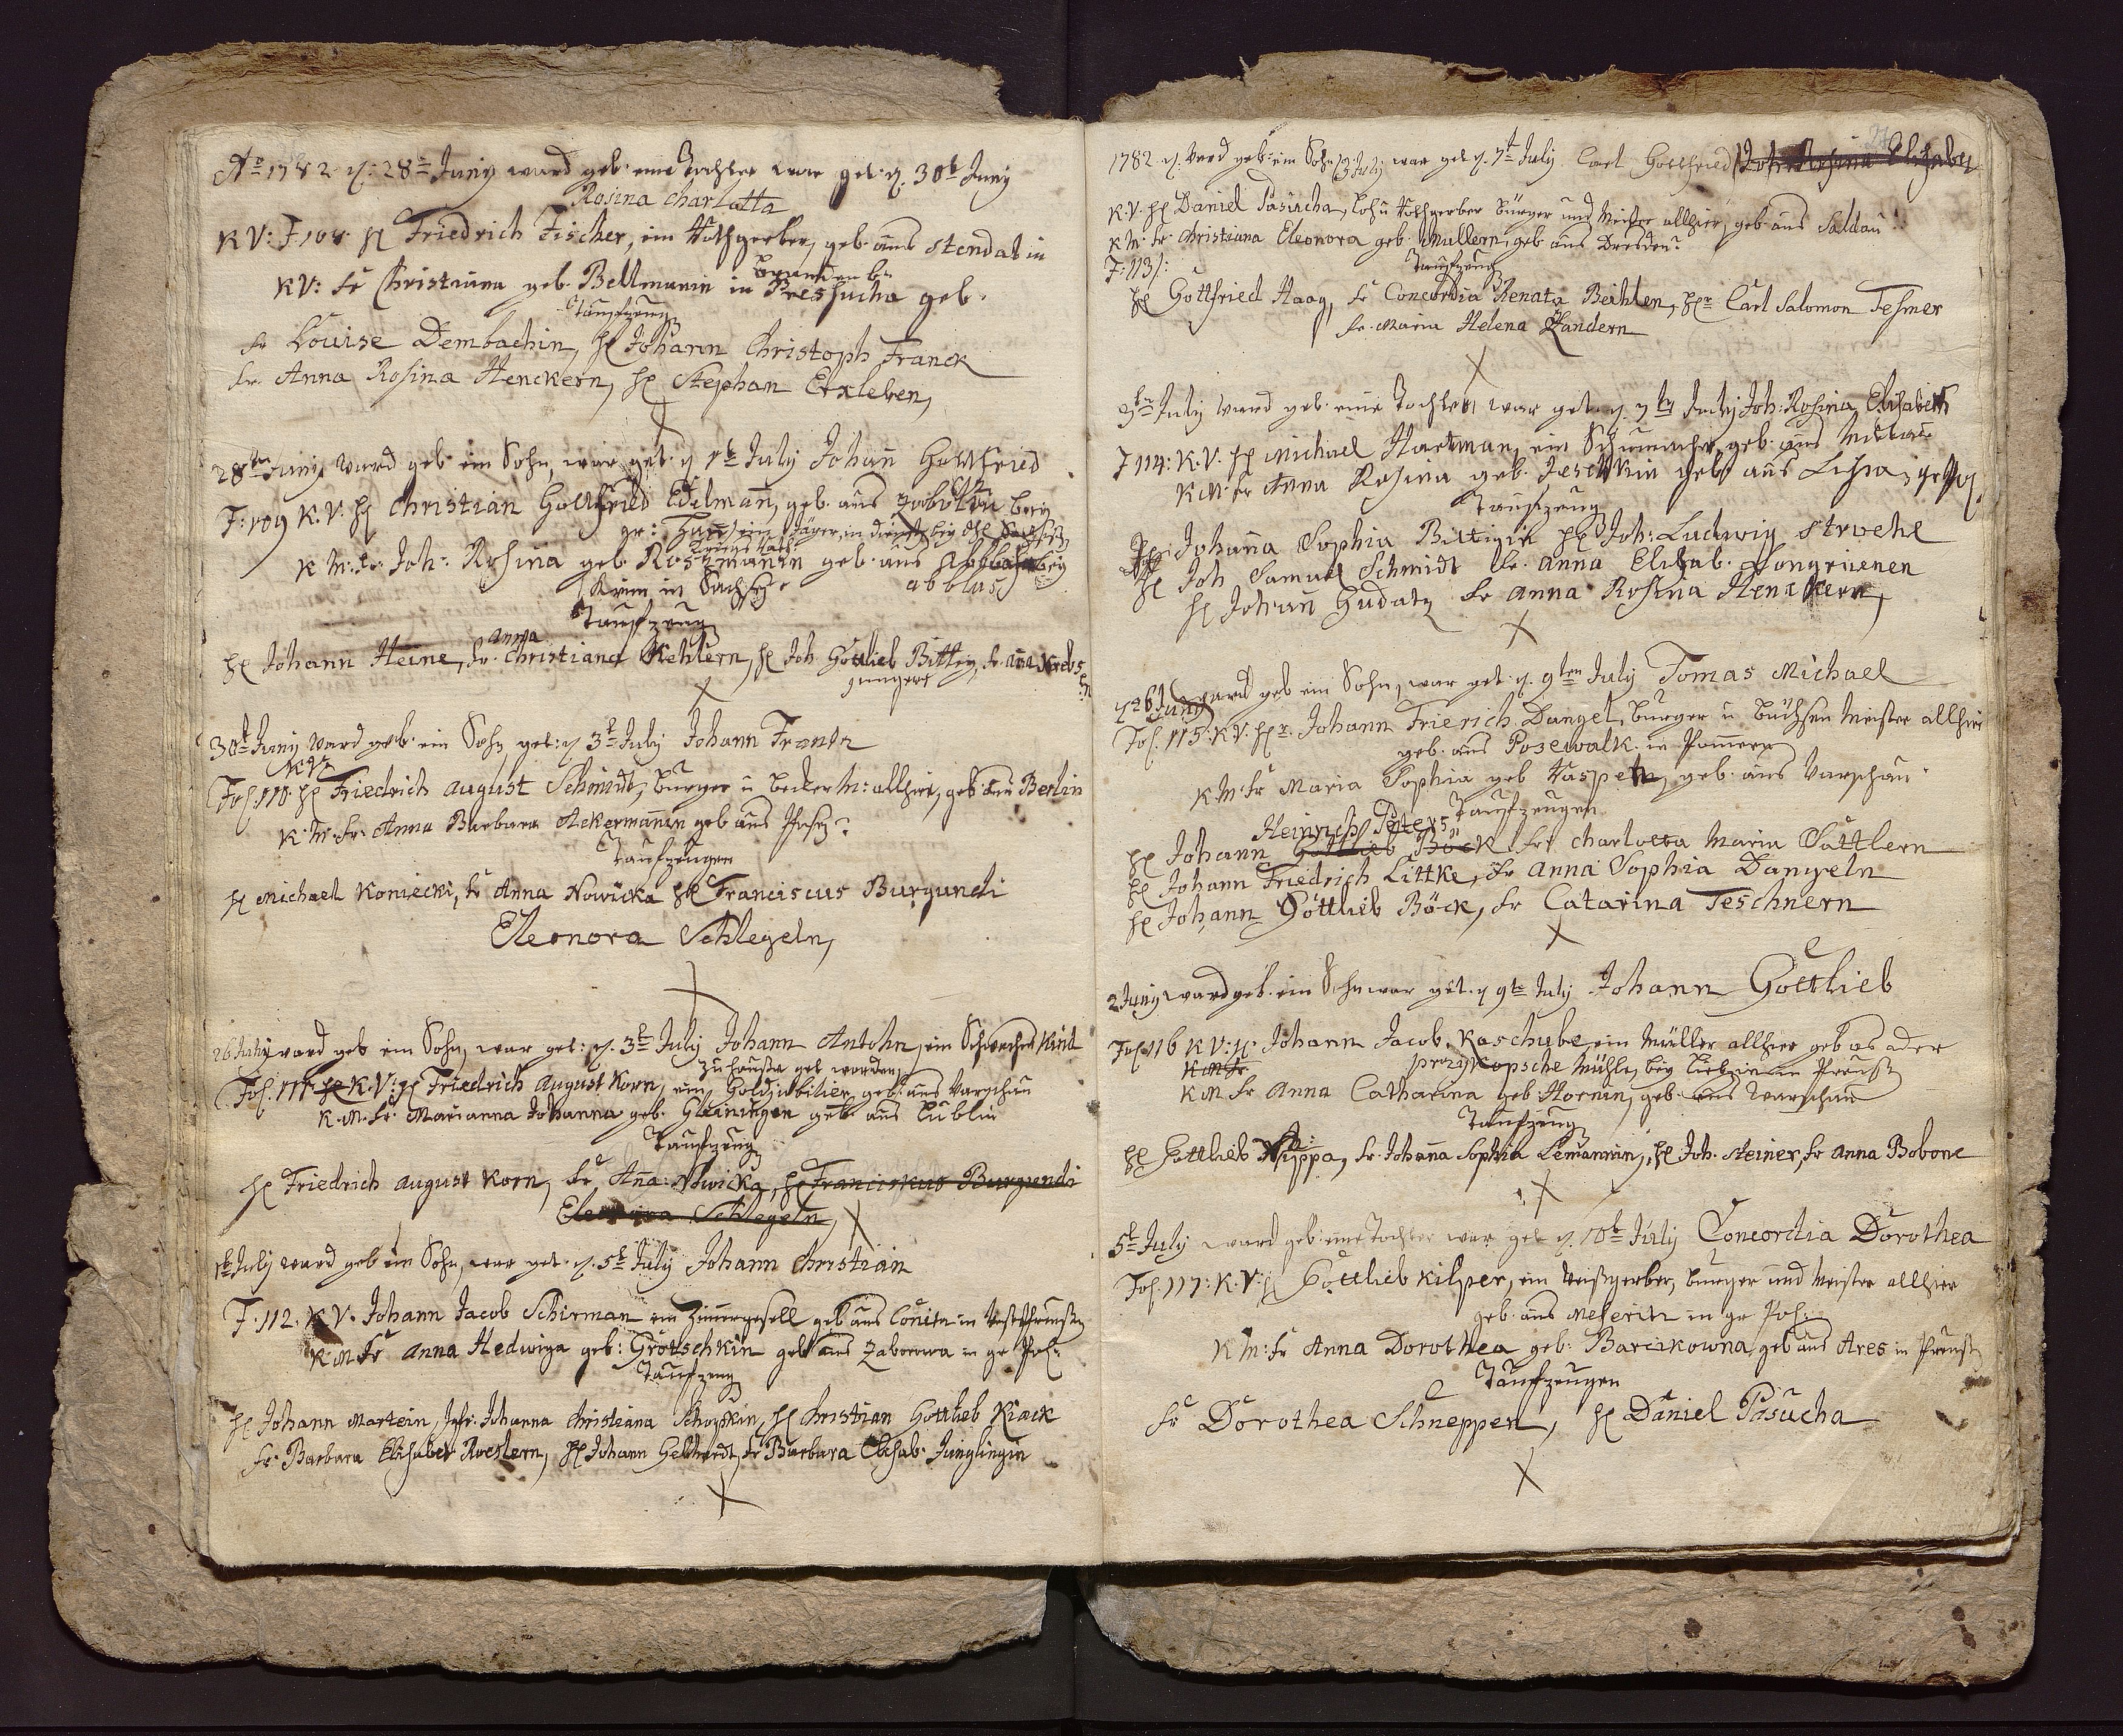 Ao 1782 d: 28tn Juny ward geb. eine Tochter war get. d. 30t Juny
Rosina Charlotta
KV: F 108 H Friedrich Fischer, ein Rothgerber, geb. aus Stendal in
Brandenb.
KV: Fr Christiana geb. Bellmanin in Pressucha geb.
Taufzeug
Fr Louise Dembachin, H Johann Christoph Franck
Fr. Anna Rosina Henckern, H Stephan Erxleben,
28tn Juny ward geb ein Sohn, war get. d 1t July Johañ Gottfried
F: 109 K. V. H Christian Gottfried Edelmañ, geb. aus
ein Jäger, in
K M: Fr. Joh: Rosina geb. geb. aus
in Sachsen
abblas
Taufzeug
Anna
H Johann Heine, Fr. Christiana Kehlern, H Joh Gottlieb Bittig, Fr. Aña Krebs
jungert
30t Juny ward geb. ein Sohn get: d 3t July Johann Frantz
KV
Fol. 110. H Friedrich August Schmidt, Bürger u Becker M: allhier, geb. aus Berlin
K. M. Fr. Anna Barbara Ackermañin geb aus
Taufzeugen
H Michael Koniecki, Fr Anna Nowicka H Franciscus Burgundi
Eleonora Schlegeln,
26 July ward geb ein Sohn, war get: d. 3t July Johann Antohn, ein Schwaches Kind
zu Hause get worden
Fol. 111 H K. V: H Friedrich August Korn, ein Goldjubilier, geb. aus Varschau
K. M. Fr. Marianna Johanna geb. Gleiningen geb aus Lublin
Taufzeug
H Friedrich August Korn, Fr Aña Nowicka, H Franciskus Burgundi
Eleonora Schlegeln,
1t July ward geb ein Sohn, war get. d. 5t July Johann Christian
F. 112. K. V. Johann Jacob Schirman ein Zimmergesell geb aus Conitz in Westpreußen
K. M. Fr Anna Hedwiga geb: Grötschkin geb aus Zaborowa in gr Pol:
Taufzeug
H Johann Martein, Jgfr. Johanna Christiana H Christian Gottlieb Kiack
Fr. Barbara Elisabet Roestern, H Johann Gebhardt, Fr Barbara Elisab. Jünglingin
1782 d. ward geb: ein Sohn 3 July, war get d. 7t July Carl Gottfried Joh: Rosina Elisabet
K. V. H Daniel Pasucha, Rothgerber Bürger und Meister allhier, geb aus Saldau
K M. Fr. Christiana Eleonora geb. Mullern, geb aus Dresden?
F: 113/:
Taufzeug
H Gottfried Haag, Fr Concordia Renata Beihlen, Hr Carl Salomon Tessmer
Fr. Maria Helena Zandern
3tn July ward geb. eine Tochter, war get. d 7tn July Joh: Rosina Elisabeth
F 114: K. V. H Michael Hartman, ein Schumacher, geb. aus
K M Fr Anna Rosina geb. Jeschkin geb. aus Lissa,
Taufzeug
Johaña Sophia Bittigin H Joh: Ludwig Stroehl
H Joh Samuel Schmidt Fr. Anna Elisab. Longrienen
H Johañ Gudatz Fr Anna Rosina Henckern,
d 26 Juny ward geb ein Sohn, war get. d. 9ten July Tomas Michael
Fol. 115. K V. Hr. Johann Frierich Dangel, Bürger u Büchsen Meister allhier
geb. aus Posewalk in Pomern
K. M. Fr Maria Sophia geb Haspeln, geb. aus Varschau
Taufzeugen
Heinrich Peters
H Johann Gottlieb Böck Fr Charlotta Maria Sattlern
H Johann Friedrich Littke, Fr Anna Sophia Dangeln
H Johann Gottlieb Böck, Fr Catarina Teschnern
2 Juny ward geb. ein Sohn war get. d 9tn July Johann Gottlieb
Fol. 116 K V: H. Johann Jacob. Kaschube, ein Müller allhier geb as ader
K M Fr. przykopsche Mühle, bey in Preuß
K M. Fr Anna Catharina geb. Hornin, geb. aus Warschau
Taufzeug
H Gottlieb Fr. Johaña Sophia Lemannin, H Joh. Steiner, Fr Anna Bobone
5t July ward geb. eine Tochter war get. d. 10t July Concordia Dorothea
Fol. 117: K. V: H Gottlieb Kilper, ein Weißgerber, Bürger und Meister allhier
geb. aus Meseritz in gr Pol.
K M: Fr Anna Dorothea geb: Barcikowna, geb aus Ares in Preuß
Taufzeugen
Fr Dorothea Schneppen, H Daniel Pasucha